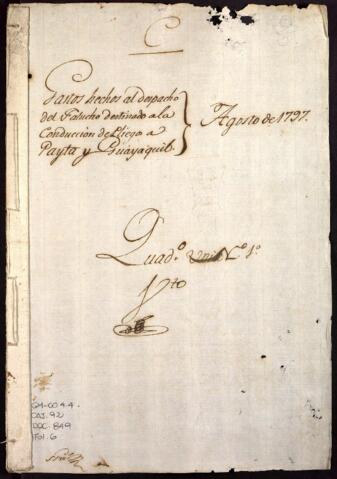 C
Gastos hechos al despacho
del Falucho destinado a la
Conducción de Pliego a
Payta y Guayaquil.
Agosto de 1797.
Quad.º Nº 1º
GM-CO 4-4.
CAJ. 92
DOC. 849
FOL. 6